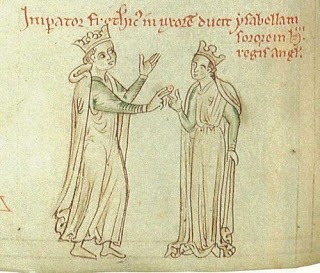 Imperator frethic' in uxorē ducit ysabellam
sororem h. iij.
regis angl'.